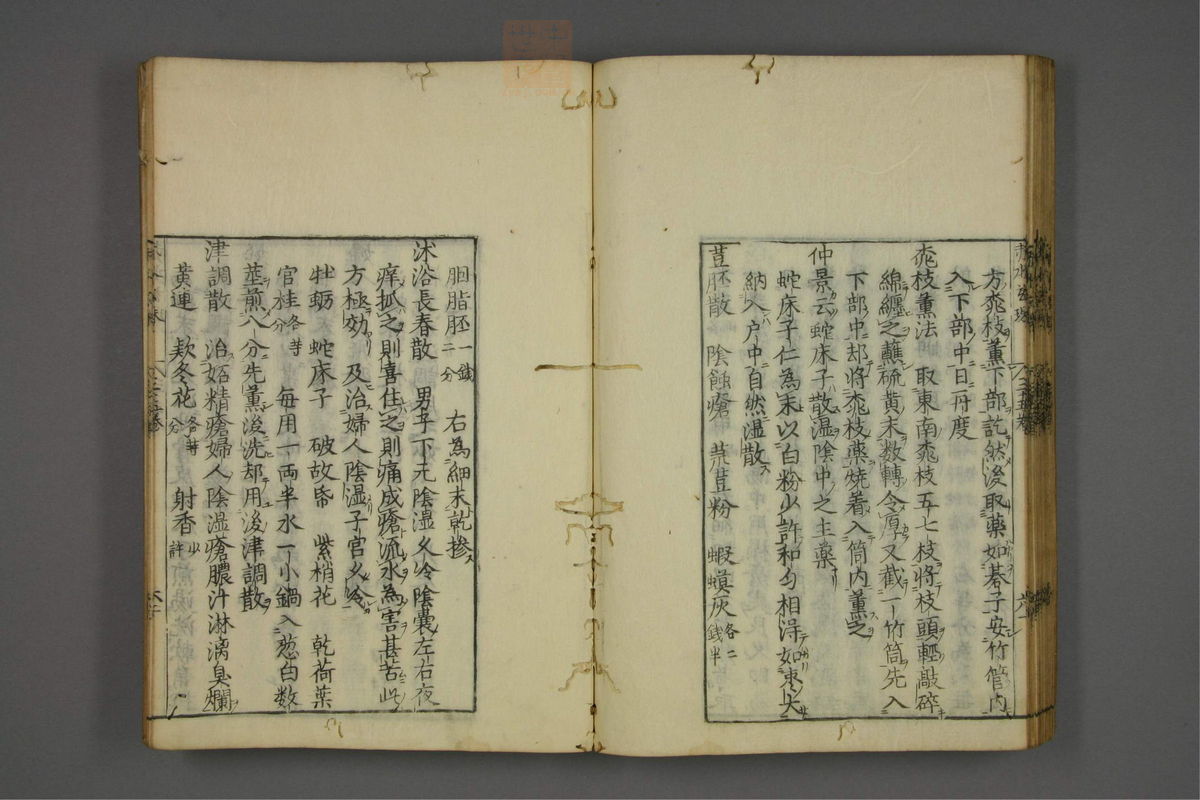 方桃枝薫下部訖然後取藥如碁子安竹管内
入下部中日一再度
桃枝薫法 取東南桃枝五七枝將枝頭輕敲碎
綿纏之蘸硫黄末数轉令厚又截一竹筒先入
下部中却將桃枝藥燒着入筒内薫之
仲景云蛇床子散温陰中之主藥
蛇床子仁為末以白粉少許和匀相得如棗大
納入户中自然温散
荳胚散 陰蝕瘡 荒荳粉 蝦蟆灰各二錢半
胭脂胚一錢二分 右為細末乾摻
沐浴長春散 男子下元陰湿久冷陰囊左右夜
痒抓之則喜住之則痛成瘡流水為害甚苦此
方極効 及治婦人陰湿子官久冷
牡蛎 蛇床子 破故昏 紫梢花 乾荷葉
官桂各等分 毎用一両半水一小鍋入葱白数
莖煎八分先薫後洗却用後津調散
津調散 治妬精瘡婦人陰湿瘡膿汁淋漓臭爛
黄連 欵冬花各等分 射香少許